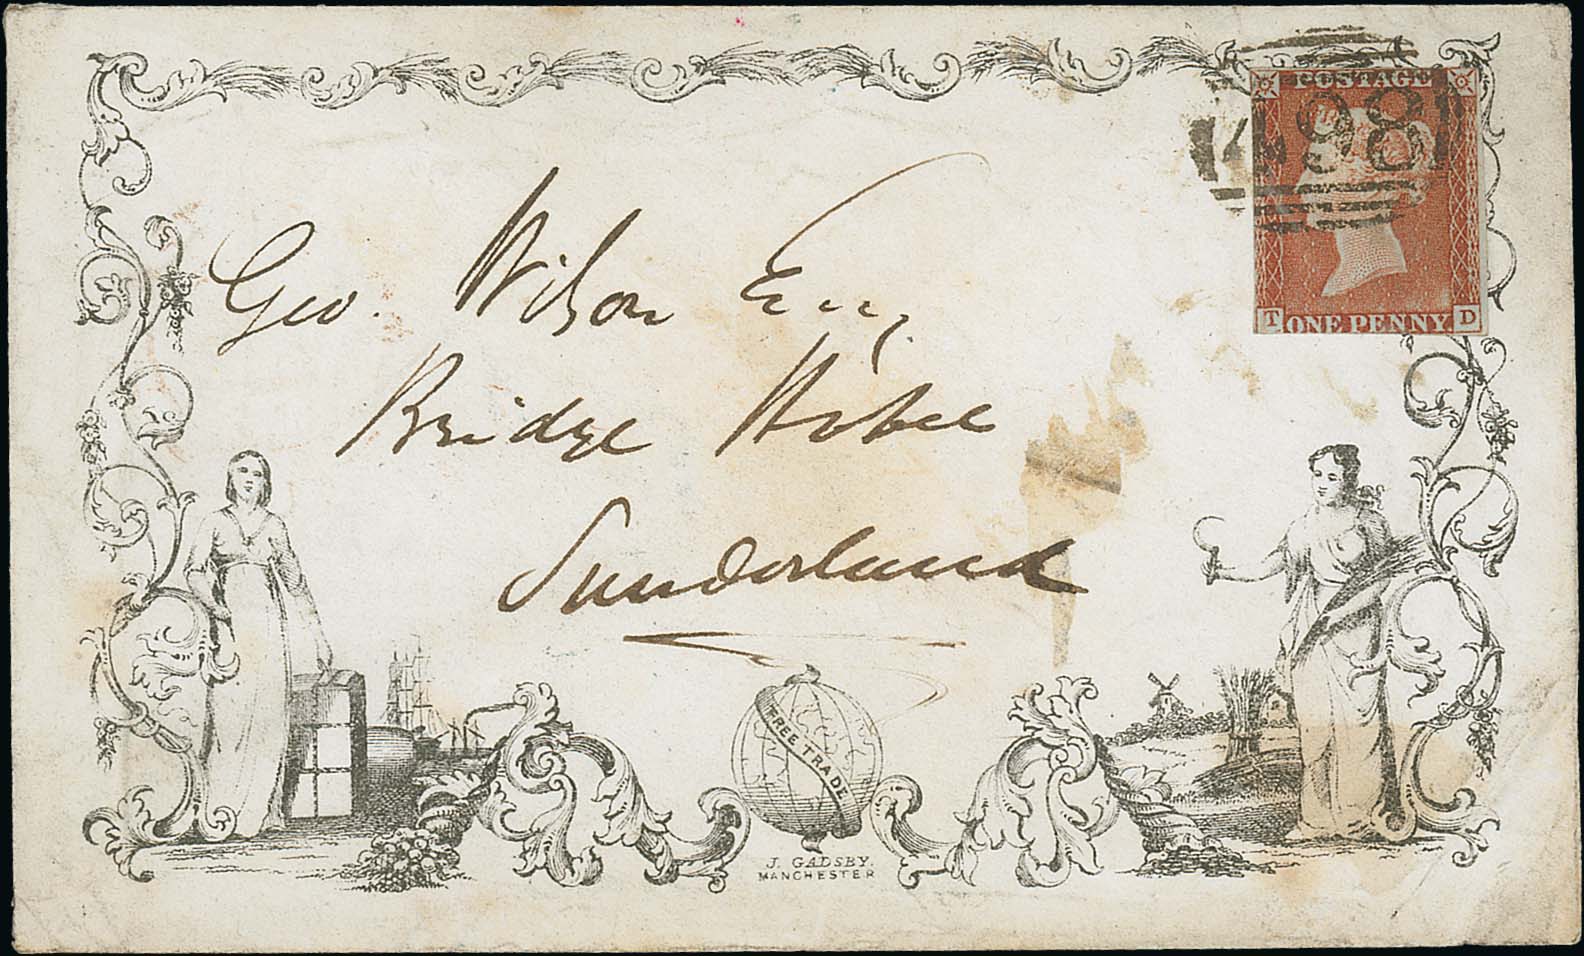 POSTAGE
498
T ONE PENNY D
Geo. Wilson Esq,
Bridge Hotel
Sunderland
FREE TRADE
J. GADSBY.
MANCHESTER